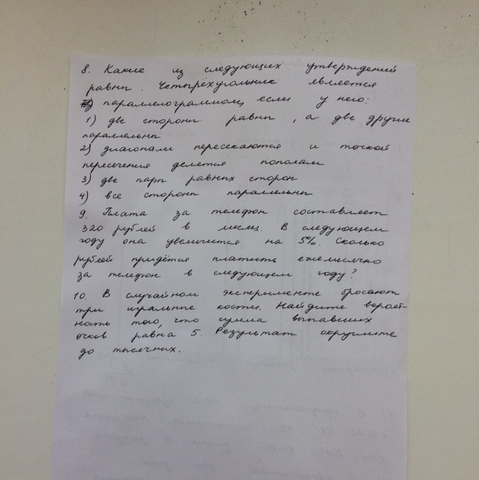 8. Какие из следующих утверждений
равны. Четырехугольник является
параллелограммом, если у него:
1) две стороны равны, а две другие
параллельны
2) диагонали пересекаются и точкой
пересечения делется пополам
3) две пары равных сторон
4) все стороны параллельны
9. Плата за телефон составляет
320 рублей в месяц. В следующем
году она увеличится на 5%. Сколько
рублей придётся платить ежемесячно
за телефон в следующем году?
10. В случайном эксперименте бросают
три игральные кости. Найдите вероят-
ность того, что сумма выпавших
очков равна 5. Результат округлите
до тысячных.